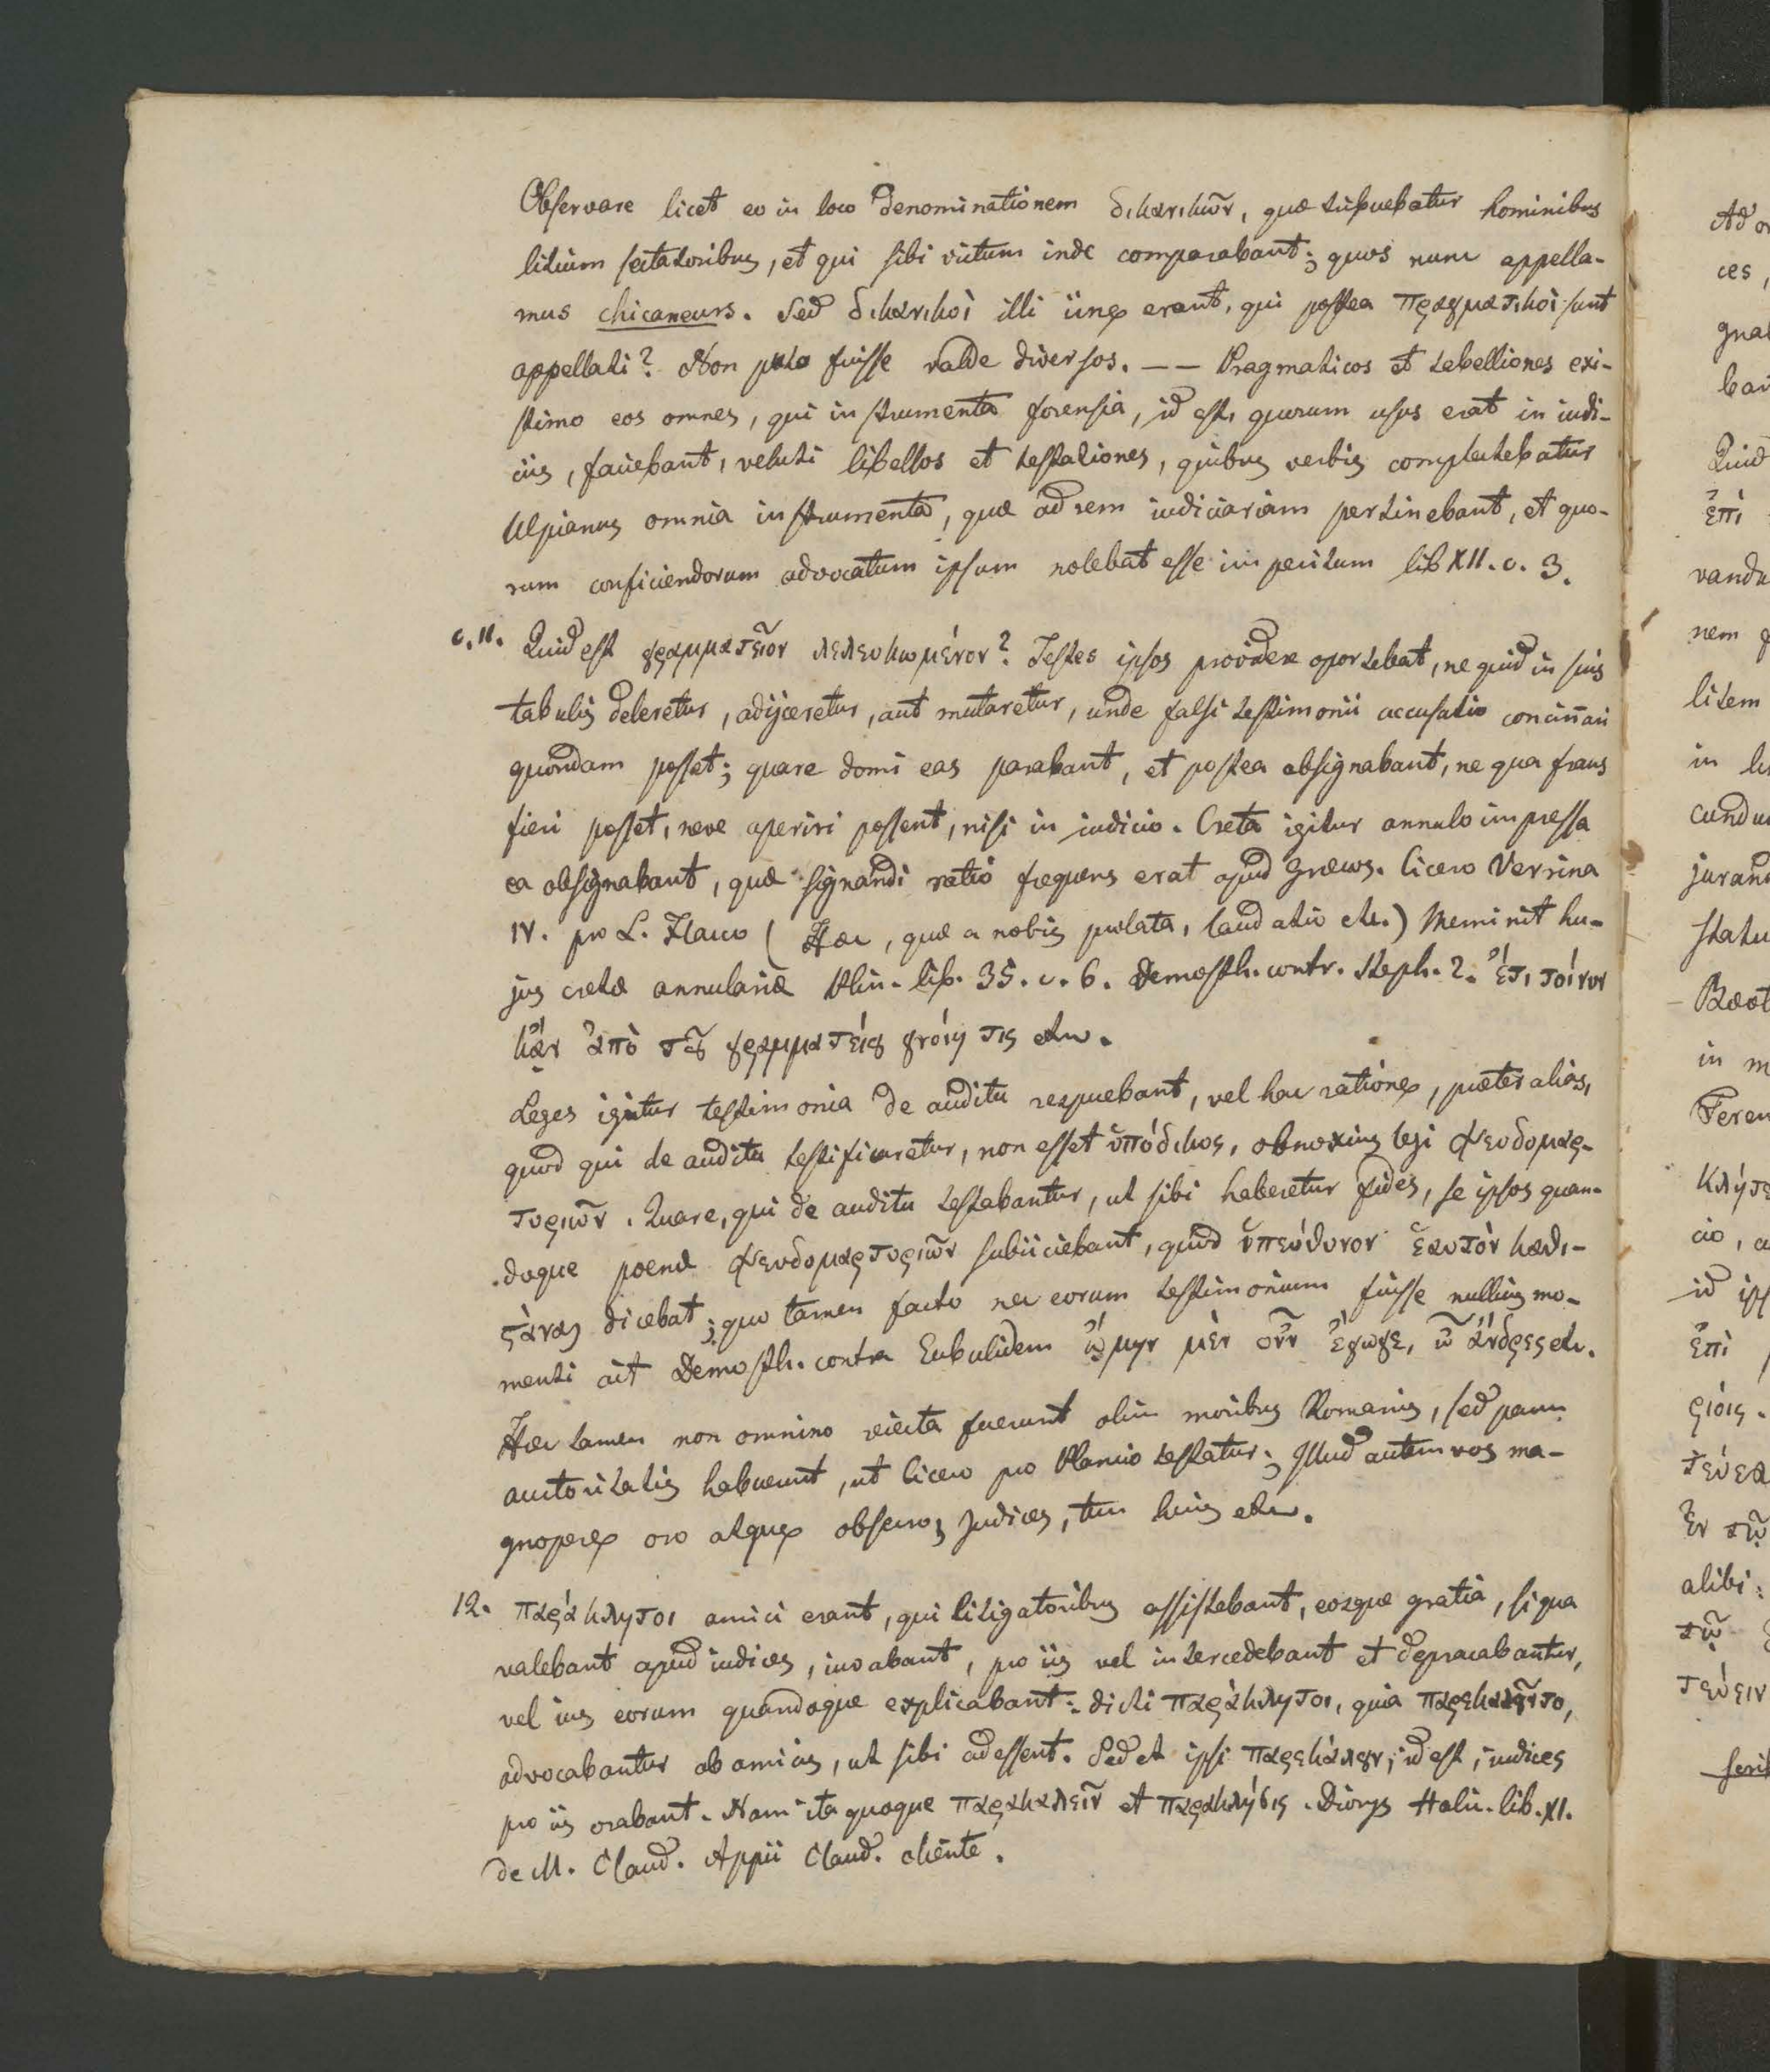 Observare licet eo in loco denominationem δικανικῶν, quæ tribuebatur hominibus
litium sectatoribus, et qui sibi victum inde comparabant; quos nunc appella-
mus chicaneurs. Sed δικανικοὶ illi iine erant, qui postea πραγματικοὶ sunt
appellati? Non puto fuisse valde diversos. — — Pragmaticos et tabelliones exi-
stimo eos omnes, qui instrumenta forensia, id est, quorum usus erat in iudi-
ciis, faciebant, veluti libellos et testationes, quibus verbis complectebatur
Ulpianus omnia instrumenta, quæ ad rem iudiciariam pertinebant, et quo-
rum conficiendorum advocatum ipsum nolebat esse imperitum lib XII. c. 3.
c. 11. Quid est γραμματεῖον λελευκωμένον? Testes ipsos providere oportebat, ne quid in suis
tabulis deleretur, adijceretur, aut mutaretur, unde falsi testimonii accusatio concin̄ari
quondam posset; quare domi eas parabant, et postea obsignabant, ne qua fraus
fieri posset, neve aperiri possent, nisi in iudicio. Creta igitur annulo impressa
ea obsignabant, quæ signandi ratio frequens erat apud Græcos. Cicero Verrina
IV. pro L. Flacco ( Hæc, quæ a nobis prolata, laudatio etc.) Meminit hu-
jus cretæ annulariæ Plin. lib. 35. c. 6. Demosth. contr. Steph. 2. ἔτι τοίνυν
κᾂν ἀπὸ τȣ͂ γραμματείȣ γνοίη τις etc.
Leges igitur testimonia de auditu respuebant, vel hac ratione, præter alias,
quod qui de auditu testificaretur, non esset ὑπόδικος, obnoxius legi ψευδομαρ-
τυριῶν. Quare, qui de auditu testabantur, ut sibi haberetur fides, se ipsos quan-
doque poenæ ψευδομαρτυριῶν subiiciebant, quod ὑπεύθυνον ἑαυτὸν καθι-
ϛάναι dicebat; quo tamen facto nec eorum testimonium fuisse nullius mo-
menti ait Demosth. contra Eubulidem ᾤμην μὲν οὖν ἔγωγε, ὦ ἄνδρες etc.
Hæc tamen non omnino reiecta fuerunt olim moribus Romanis, sed parum
auctoritatis habuerunt, ut Cicero pro Plancio testatur; Illud autem vos ma-
gnopere oro atque obsecro, Judices, tum huius etc.
12. παράκλητοι amici erant, qui litigatoribus assistebant, eosque gratia, si qua
valebant apud iudices, iuvabant, pro iis vel intercedebant et deprecabantur,
vel ius eorum quandoque explicabant: dicti παράκλητοι, quia παρεκαλȣ͂ντο,
advocabantur ab amicis, ut sibi adessent. Sed et ipsi παρεκάλȣν, id est, iudices
pro iis orabant. Nam ita quoque παρακαλεῖν et παρακλήσις. Dionys Halic. lib. XI.
de M. Claud. Appii Claud. cliente.